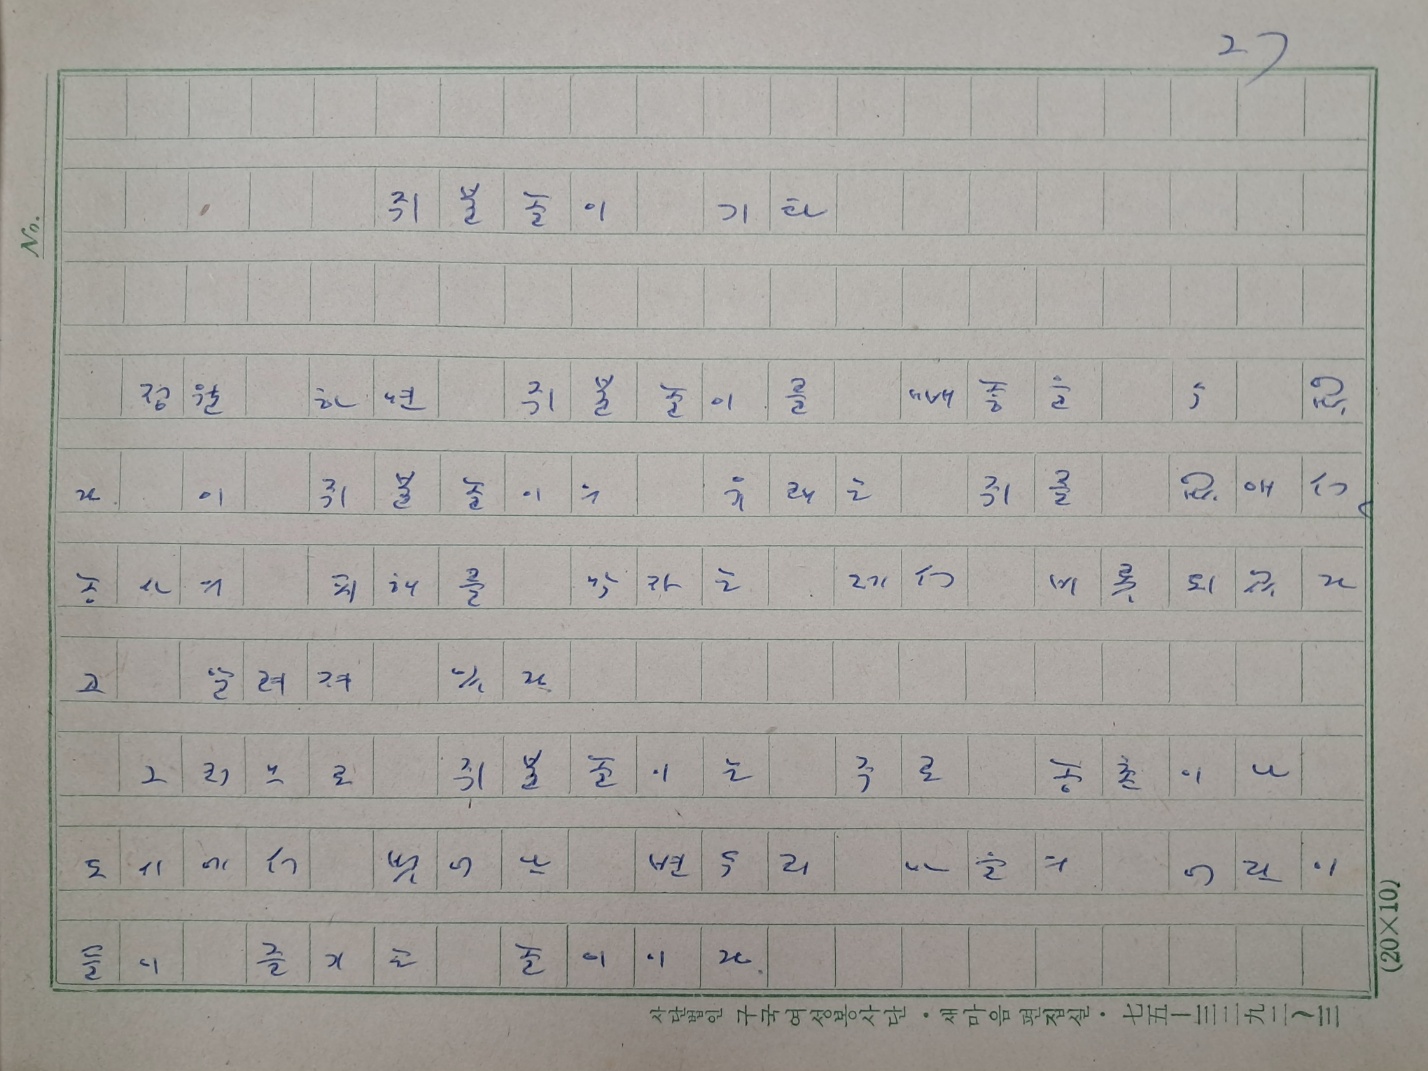 27
No.
쥐불놀이 기타
정월 하면 쥐불놀이를 빼놓을 수 없
다. 이 쥐불놀이가 유래는 쥐를 없애서
농사가 피해를 막자는 데서 비롯되었다
고 알려져 있다.
그러므로 쥐불놀이는 주로 농촌이나
도시에서 벗어난 변두리 마을의 어린이
들이 즐기는 놀이이다.
(20×10)
사단법인 구국여성봉사단·새마음편집실·七五一三三九二〜三